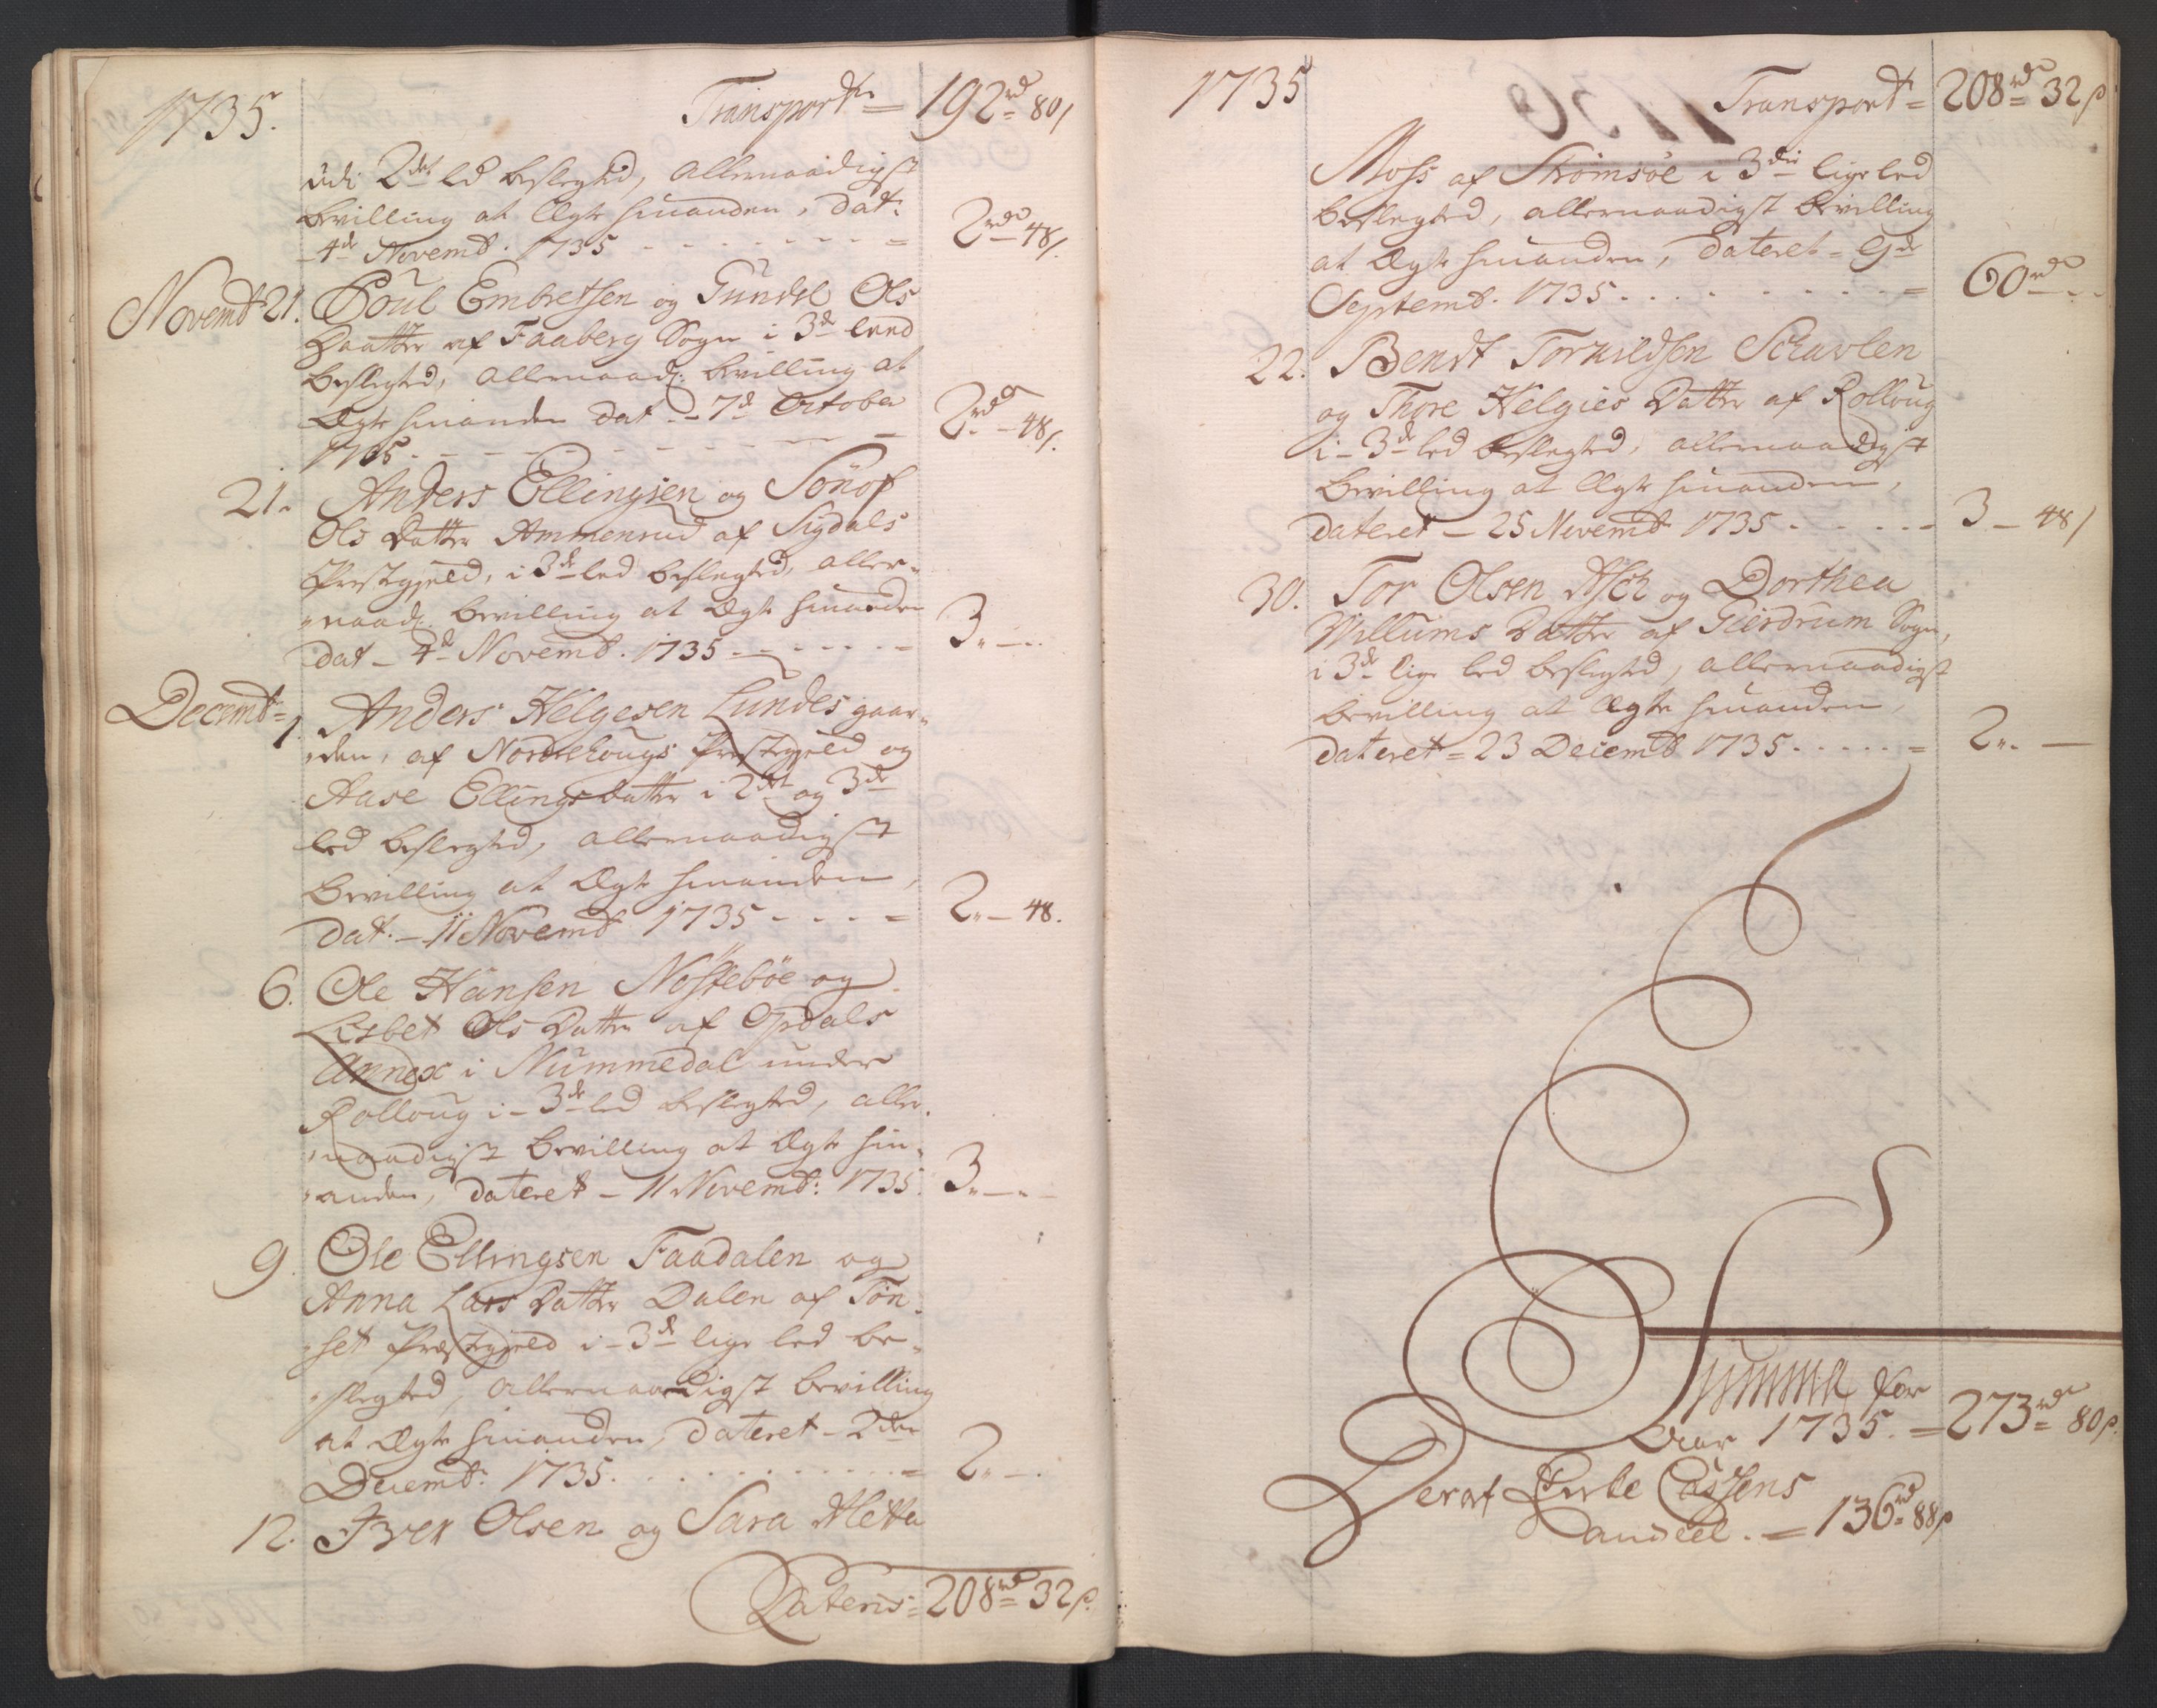 1735.
Transport = 192 rd 80 s
udi 2det led beslegted, allernaadigst
bevilling at Ægte hinanden, dat:
4de Novemb. 1735 - - - - = 2 rd 48 s.
Novembr 21. Poul Embretsen og Gundel Ols
Daatter af Faaberg Sogn i 3de leed
beslegted, allernaad: bevilling at
Ægte hinanden dat - 7de October
1735 - - - - - 2 rd - 48 s.
21. Anders Ellingsen og Sönof
Ols Datter Ammenrud af Sigdals
Præstegjeld, i 3de led beslegted, aller-
naad: bevilling at Ægte hinanden
dat - 4de Novemb. 1735 - - - - 3 „ - .
Decembr = 1. Anders Helgesen Lundes gaar-
den, af Norderhougs Præstegjeld og
Aase Ellings datter i 2det og 3de
led beslegted, allernaadigst
Bevilling at Ægte hinanden,
dat. - 11 Novemb 1735 - - - - = 2 „ - 48.
6. Ole Hansen Nösteböe og
Lisbet Ols Datter af Opdals
Annex i Nummedal under
Rolloug i - 3de led beslegted, aller-
naadigst bevilling at Ægte hin-
anden, dateret - 11 Novemb: 1735. 3 „ - „ -
9. Ole Ellingsen Faadalen og
Anna Lars Datter Dalen af Tön-
set Præstegjeld i - 3de lige led be-
slegted, allernaadigst bevilling
at Ægte hinanden, dateret - 2den
Decemb: 1735. . . . . . = 2 „ - .
12. Iver Olsen og Sara Metta
Lateris = 208 rd 32 s.
1735
Transport = 208 rd 32 s
Moss af Strömsöe i 3die lige led
beslegted, allernaadigst bevilling
at Ægte hinanden, dateret - 9de
Septemb. 1735 . . . . . . = 60 rd - -
22. Bendt Torkildsen Schavlen
og Thore Helgies Datter af Rolloug
i - 3de led beslegted, allernaadigst
bevilling at Ægte hinanden,
dateret - 25 Novembr 1735 - - - - 3 - 48 s
30. Tor Olsen Asch og Dorthea
Willums Datter af Gierdrum Sogn,
i 3de lige led beslegted, allernaadigst
bevilling at Ægte hinanden,
dateret = 23 Decembr 1735 . . . . = 2 „ . -
Summa for
Aar 1735. = 273 rd 80 s.
Deraf Cassens
andeel. = 136 rd 88 s